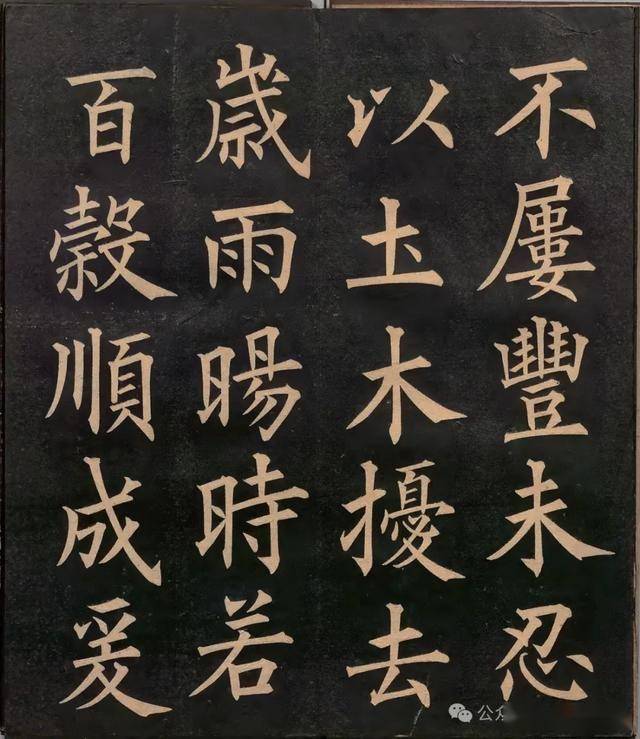 不屢豐未忍
以土木擾去
歲雨暘時若
百穀順成爰
公众